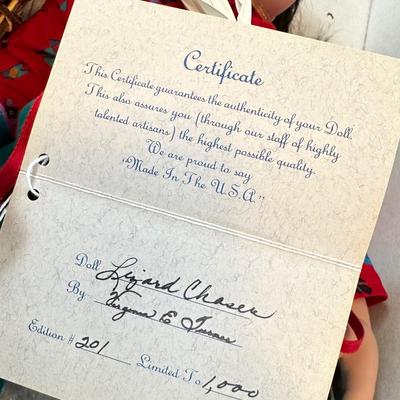 Certificate
This Certificate guarantees the authenticity of your Doll.
This also assures you (through our staff of highly
talented artisans) the highest possible quality.
We are proud to say
"Made In The U.S.A."
Doll Lizard Chaser
By Virginia E Turner
Edition # 201 Limited To 1,000